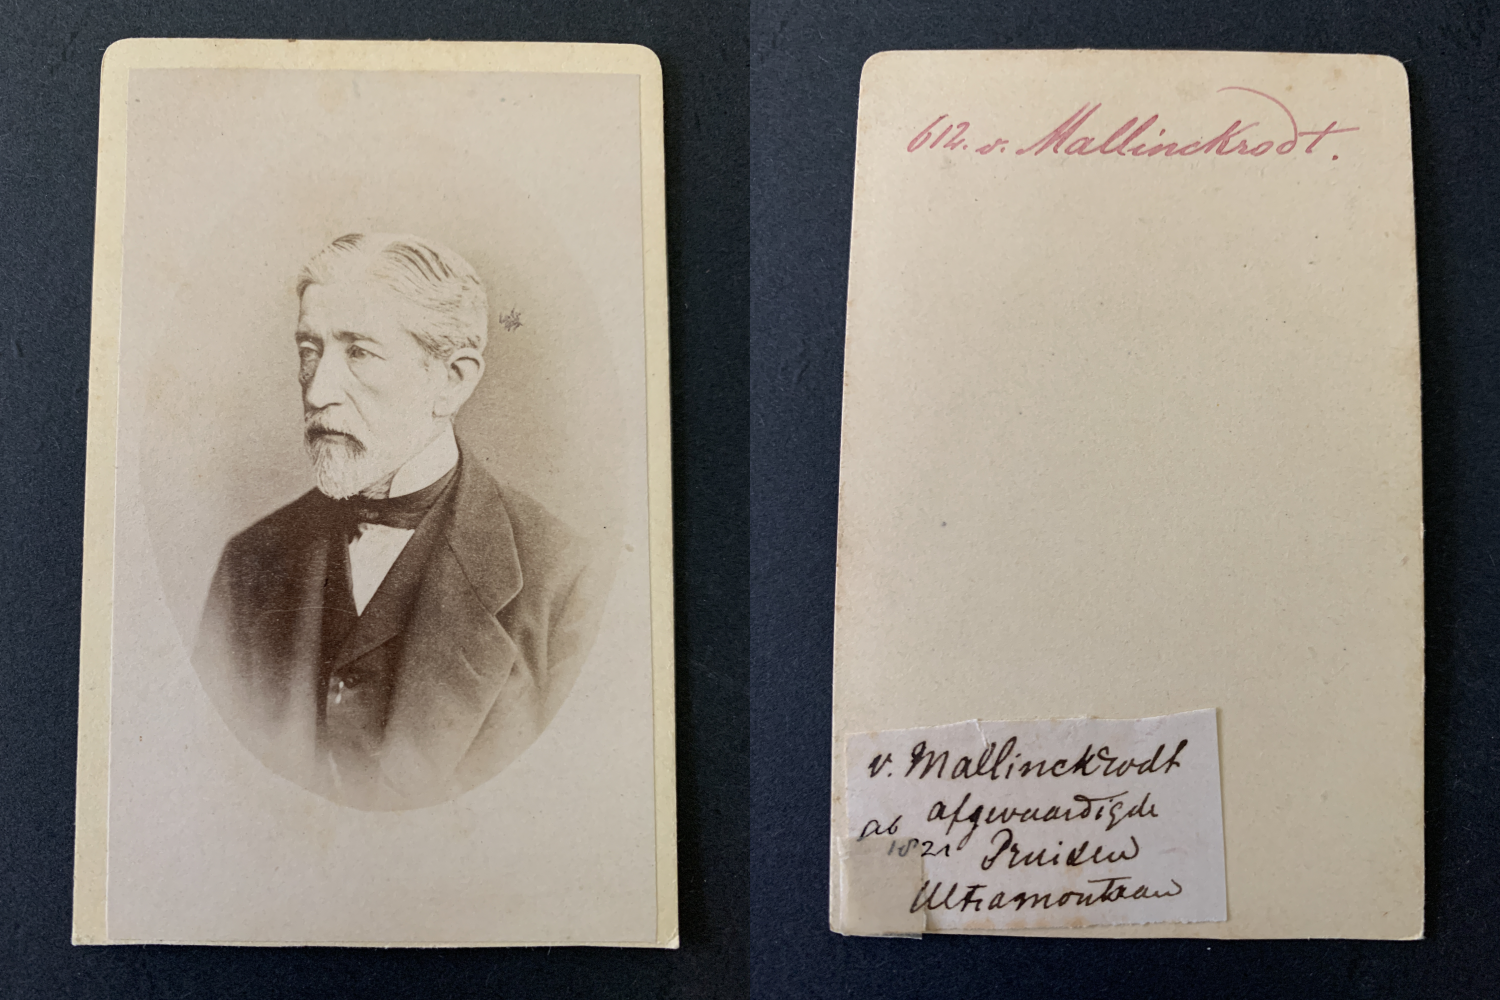 612. v. Mallinckrodt.
v. Mallinckrodt
afgevaardigde
ab
1821 Pruisen
Ultramontaan